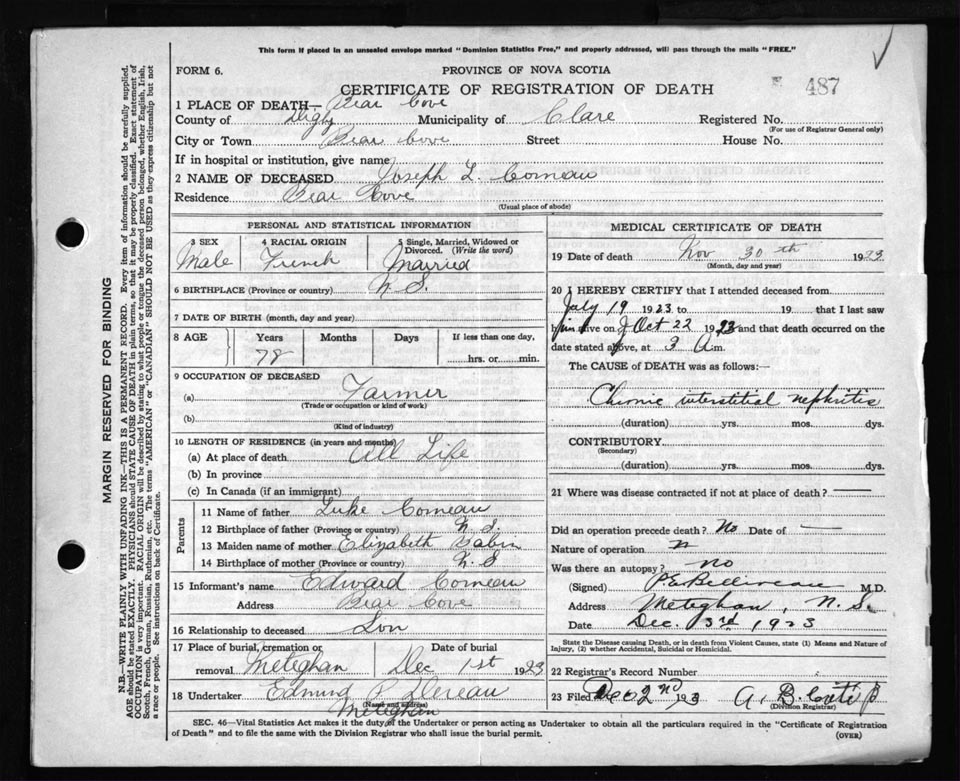 This form if placed in an unsealed envelope marked "Dominion Statistics Free," and properly addressed, will pass through the mails "FREE."
FORM 6.
PROVINCE OF NOVA SCOTIA
CERTIFICATE OF REGISTRATION OF DEATH
487
1 PLACE OF DEATH— Bear Cove
County of Digby Municipality of Clare Registered No.
(For use of Registrar General only)
City or Town Bear Cove Street House No.
If in hospital or institution, give name
2 NAME OF DECEASED Joseph L. Comeau
Residence Bear Cove
(Usual place of abode)
PERSONAL AND STATISTICAL INFORMATION
3 SEX 4 RACIAL ORIGIN 5 Single, Married, Widowed or Divorced. (Write the word)
Male French Married
6 BIRTHPLACE (Province or country) N.S.
7 DATE OF BIRTH (month, day and year)
8 AGE Years Months Days If less than one day,
78 hrs. or min.
9 OCCUPATION OF DECEASED
(a) Farmer
(Trade or occupation or kind of work)
(b)
(Kind of industry)
10 LENGTH OF RESIDENCE (in years and months)
(a) At place of death All Life
(b) In province
(c) In Canada (if an immigrant)
Parents
11 Name of father Luke Comeau
12 Birthplace of father (Province or country) N.S.
13 Maiden name of mother Elizabeth Babin
14 Birthplace of mother (Province or country) N.S
15 Informant's name Edward Comeau
Address Bear Cove
16 Relationship to deceased Son
17 Place of burial, cremation or removal Meteghan Date of burial Dec 1st 1923
18 Undertaker Edmund P. Deveau
(Name and address)
Meteghan
MEDICAL CERTIFICATE OF DEATH
19 Date of death Nov 30th 1923
(Month, day and year)
20 I HEREBY CERTIFY that I attended deceased from
July 19 1923 to 19 that I last saw
him alive on Oct 22 1923 and that death occurred on the
date stated above, at 3 A m.
The CAUSE of DEATH was as follows:—
Chronic interstitial nephritis
(duration) yrs. mos. dys.
CONTRIBUTORY
(Secondary)
(duration) yrs. mos. dys.
21 Where was disease contracted if not at place of death?
Did an operation precede death? No Date of —
Nature of operation
Was there an autopsy? no
(Signed) P.E. Belliveau M.D.
Address Meteghan, N.S.
Date Dec. 3rd 1923
State the Disease causing Death, or in death from Violent Causes, state (1) Means and Nature of Injury, (2) whether Accidental, Suicidal or Homicidal.
22 Registrar's Record Number
23 Filed Dec 2nd 1923 A. B.
(Division Registrar)
SEC. 46—Vital Statistics Act makes it the duty of the Undertaker or person acting as Undertaker to obtain all the particulars required in the "Certificate of Registration
of Death" and to file the same with the Division Registrar who shall issue the burial permit.
(OVER)
MARGIN RESERVED FOR BINDING
N.B.—WRITE PLAINLY WITH UNFADING INK—THIS IS A PERMANENT RECORD. Every item of information should be carefully supplied.
AGE should be stated EXACTLY. PHYSICIANS should STATE CAUSE OF DEATH in plain terms, so that it may be properly classified. Exact statement of
OCCUPATION is very important. RACIAL ORIGIN will be described by stating to what people or tongue the deceased person belonged, whether English, Irish,
Scotch, French, German, Russian, Ruthenian, etc. The terms "AMERICAN" or "CANADIAN" SHOULD NOT BE USED as they express citizenship but not
a race or people. See instructions on back of Certificate.